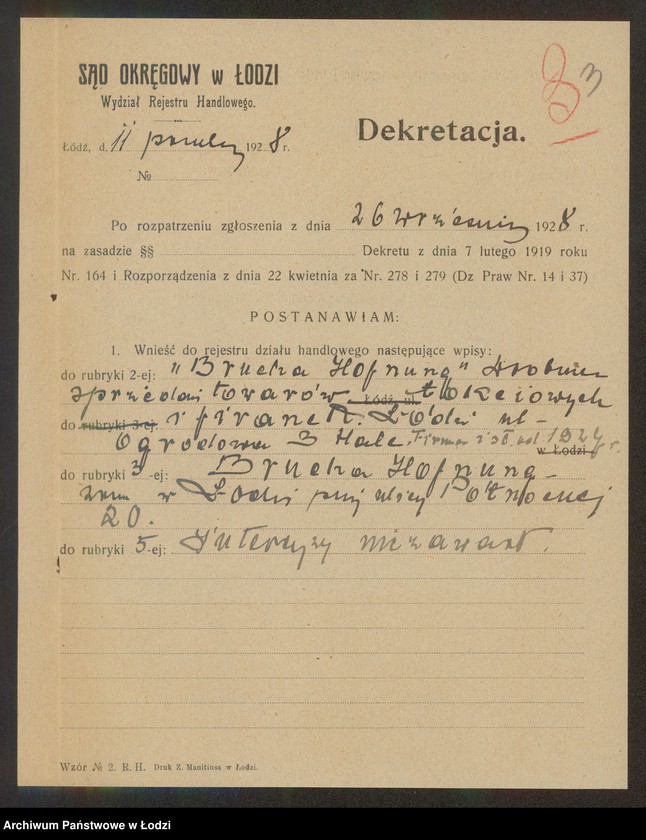 SĄD OKRĘGOWY w ŁODZI
Wydział Rejestru Handlowego.
3
Łódź, d. 11 1928 r.
Dekretacja.
№
Po rozpatrzeniu zgłoszenia z dnia 26 września 1928 r.
na zasadzie §§ Dekretu z dnia 7 lutego 1919 roku
Nr. 164 i Rozporządzenia z dnia 22 kwietnia za Nr. 278 i 279 (Dz Praw Nr. 14 i 37)
POSTANAWIAM:
1. Wnieść do rejestru działu handlowego następujące wpisy:
do rubryki 2-ej: "Brucha Hofnung" drobna
sprzedaż towarów Łódź, ul. łokciowych
do rubryki 3-ej: i firanek. Łódź ul.
Ogrodowa 3 Hale. Firma istn. od 1927 r.
w Łodzi
do rubryki 3-ej: Brucha Hofnung
zam w Łodzi przy ulicy Północnej
20.
do rubryki 5-ej: Intercyzy nie zawarł.
Wzór № 2. R. H. Druk Z. Manitiusa w Łodzi.
Archiwum Państwowe w Łodzi